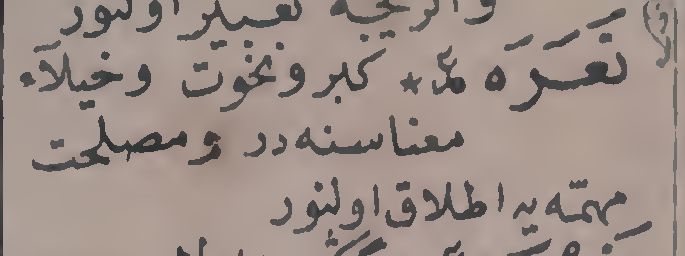 تعبير اولنور
نَعَرَه * كبر و نخوت و خيلاء
معناسنه در و مصلحت
مهمّه يه اطلاق اولنور